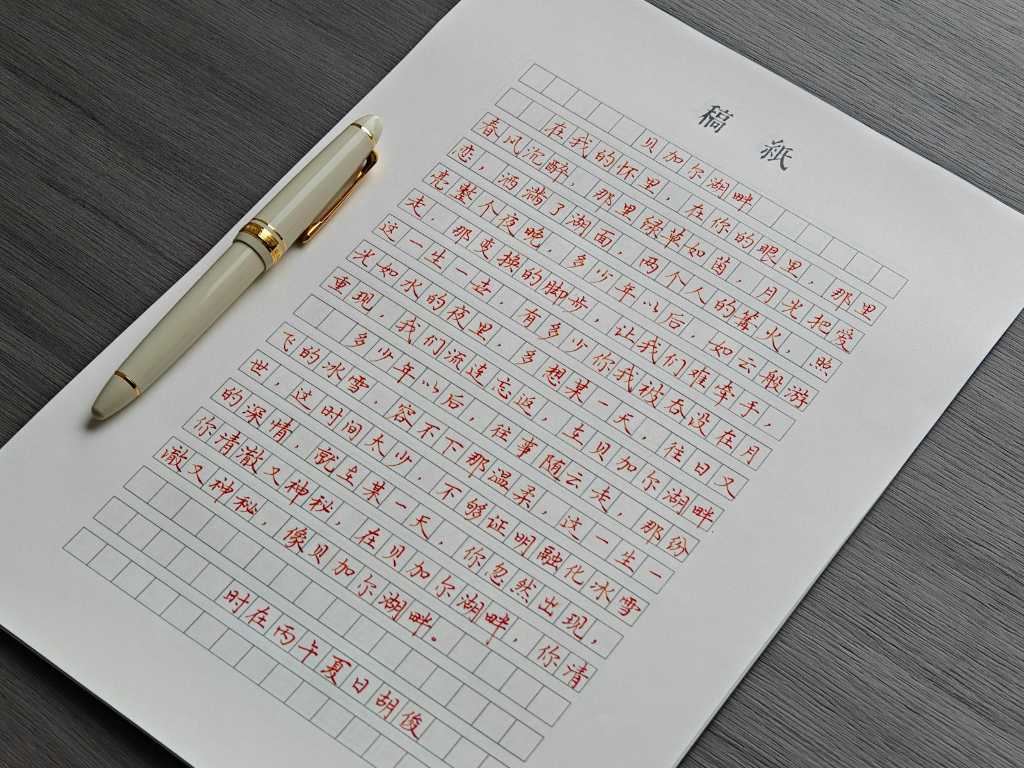 稿 紙
贝加尔湖畔
在我的怀里，在你的眼里，那里
春风沉醉，那里绿草如茵，月光把爱
恋，洒满了湖面，两个人的篝火，照
亮整个夜晚，多少年以后，如云般游
走，那变换的脚步，让我们难牵手，
这一生一去，有多少你我被吞没在月
光如水的夜里，多想某一天，往日又
重现，我们流连忘返，在贝加尔湖畔.
多少年以后，往事随云走，那纷
飞的冰雪，容不下那温柔，这一生一
世，这时间太少，不够证明融化冰雪
的深情，就在某一天，你忽然出现，
你清澈又神秘，在贝加尔湖畔，你清
澈又神秘，像贝加尔湖畔。
时在丙午夏日胡俊